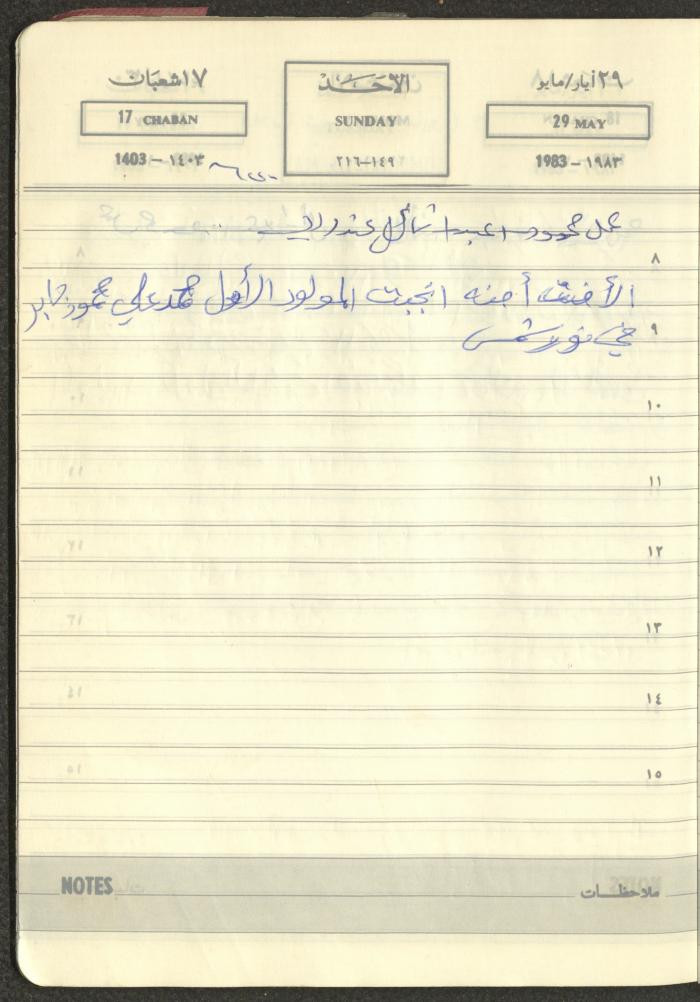 ١٧ شعبان
الأحد
٢٩ أيار/مايو
17 CHABAN
SUNDAY
29 MAY
1403 – ١٤٠٣
٢١٦–١٤٩
1983 – ١٩٨٣
عمل محمود عند
٨
الأخت أمنه انجبت المولود الأول محمد علي محمود جابر
في نور شمس
٩
١٠
١١
١٢
١٣
١٤
١٥
NOTES
ملاحظات